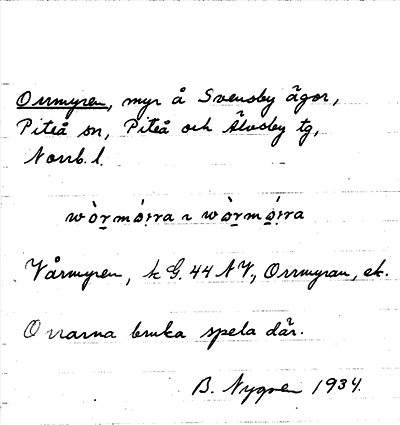 Orrmyren, myr å Svensby ägor,
Piteå sn, Piteå och Älvsby tg,
Norrb. l.
wòrmó̤ṛra ı wòrmó̤ṛra
Vårmyren, k G. 44 NV., Orrmyran, ek.
Orrarna bruka spela där.
B. Nygren 1934.